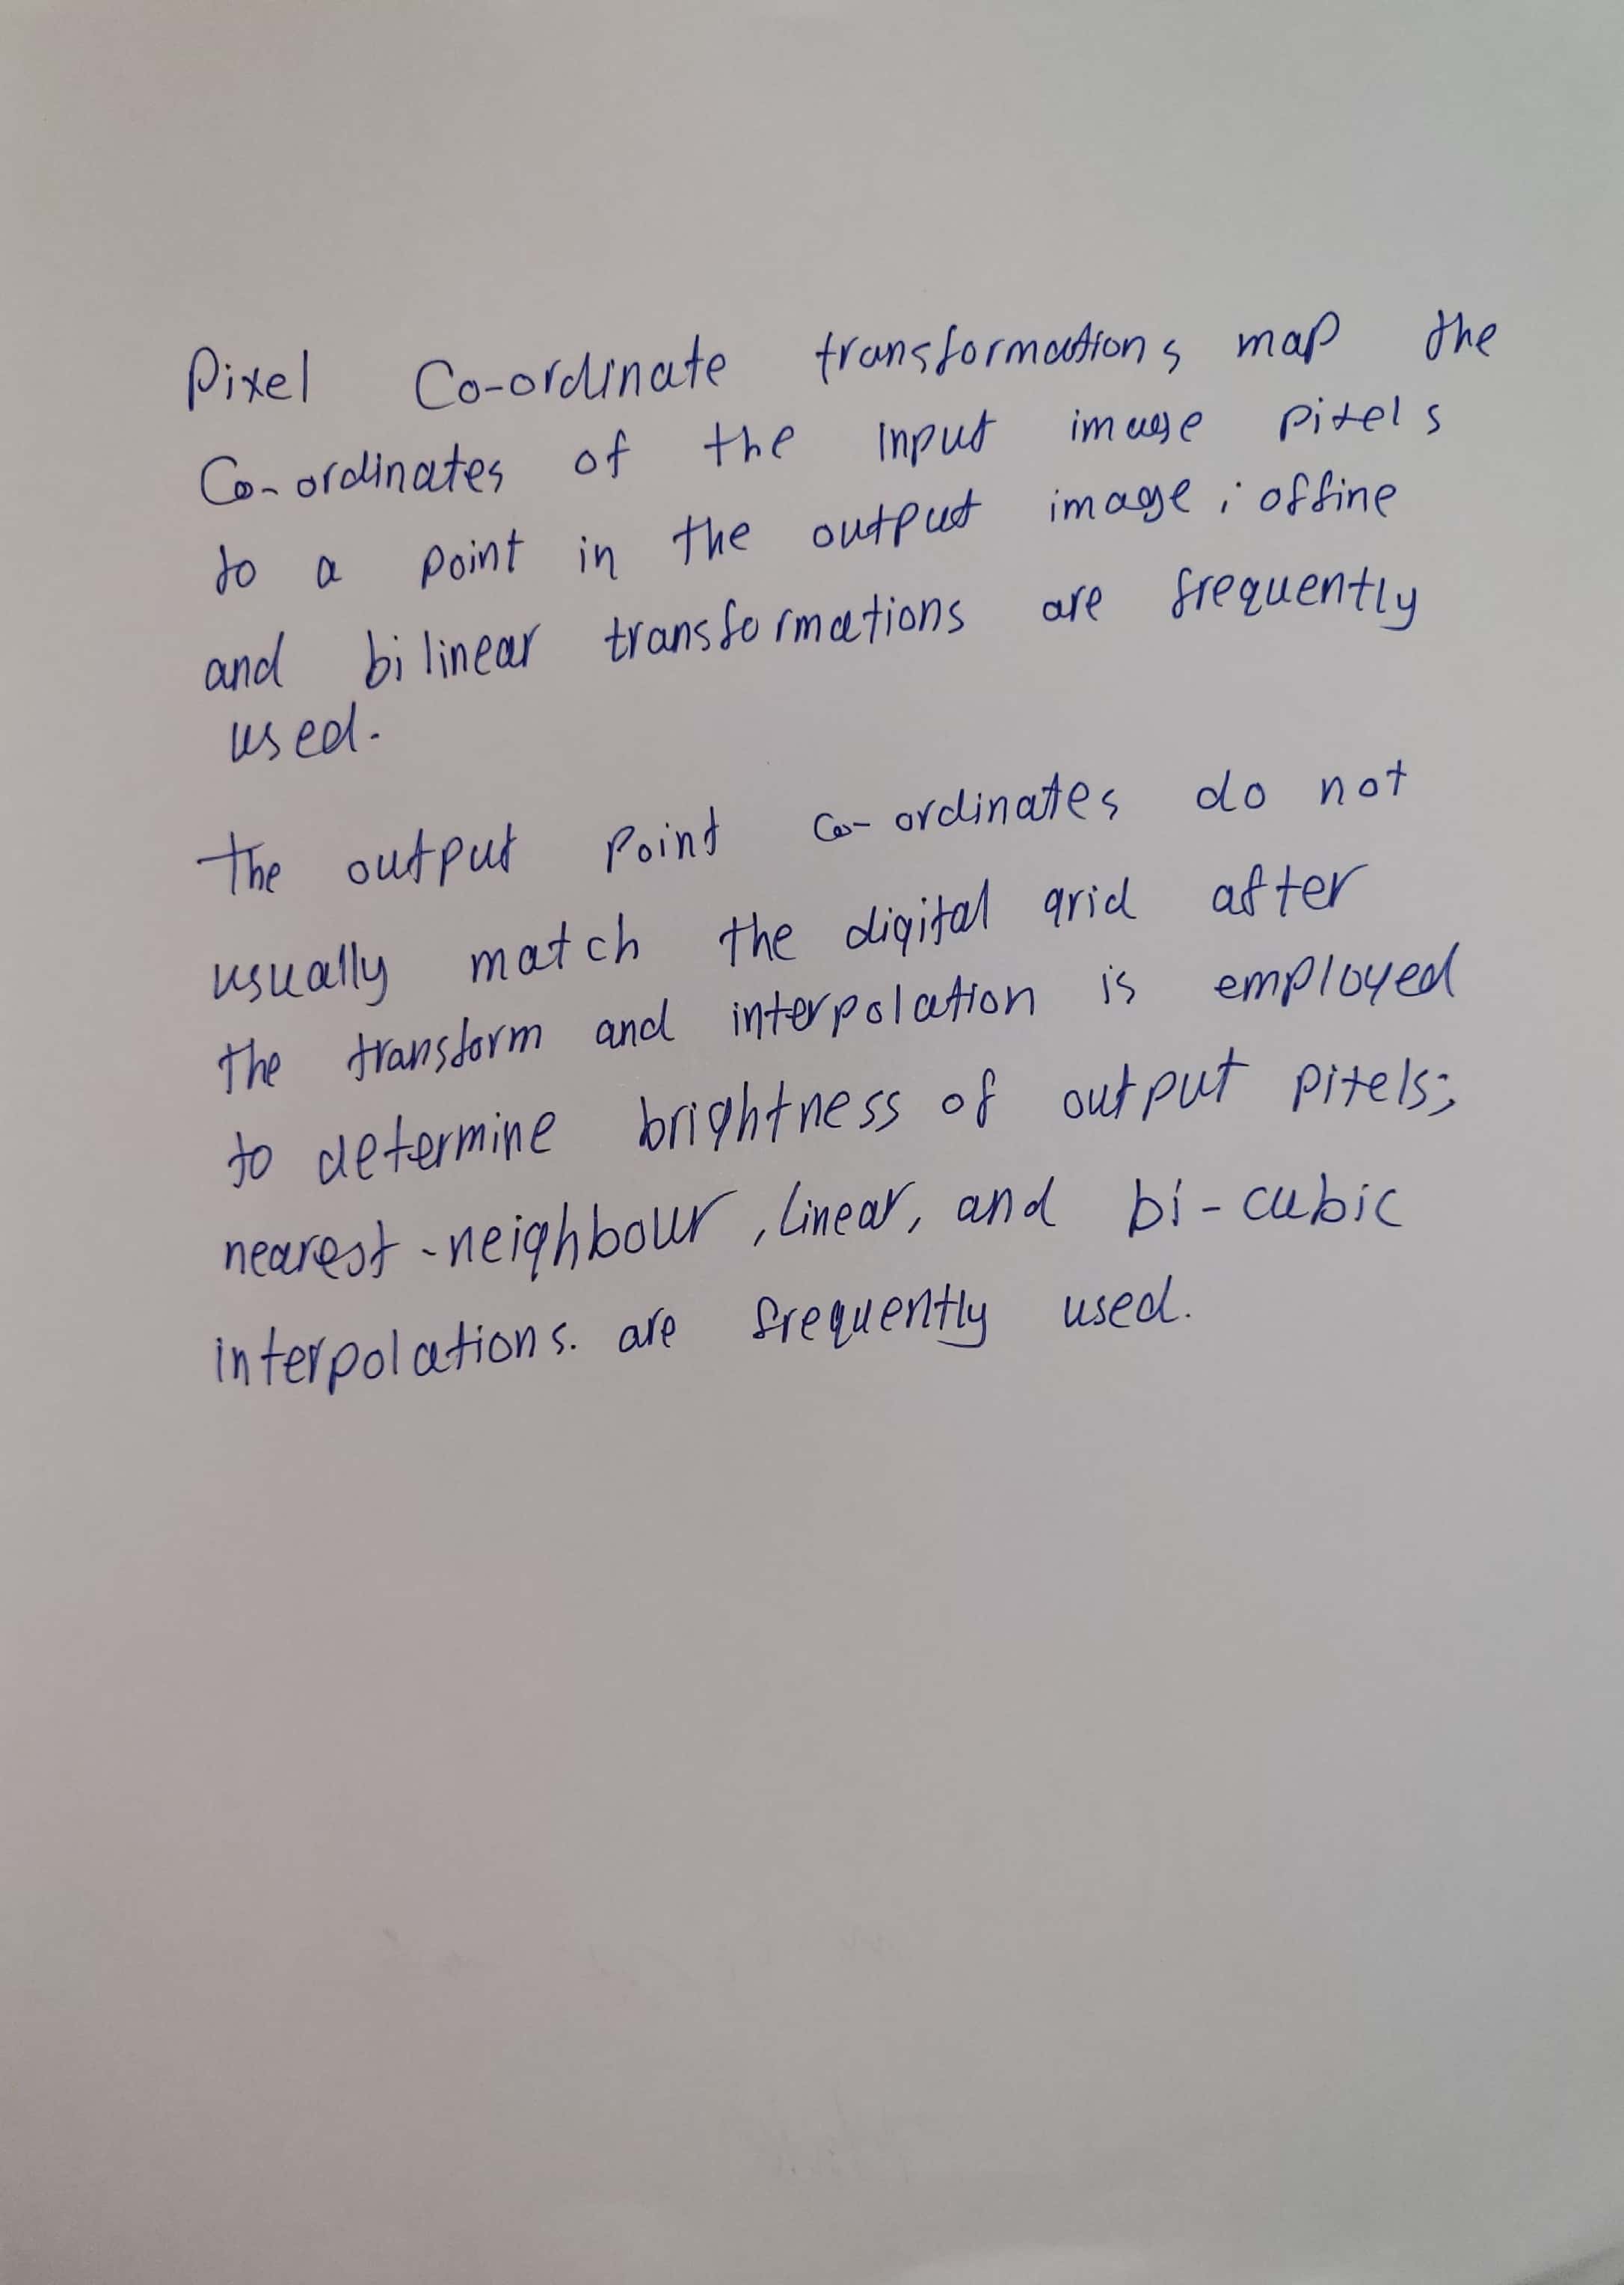 Pixel Co-ordinate transformations map the
Co-ordinates of the input image pixels
to a point in the output image; affine
and bilinear transformations are frequently
used.
The output point co-ordinates do not
usually match the digital grid after
the transform and interpolation is employed
to determine brightness of output pixels;
nearest-neighbour, linear, and bi-cubic
interpolations. are frequently used.